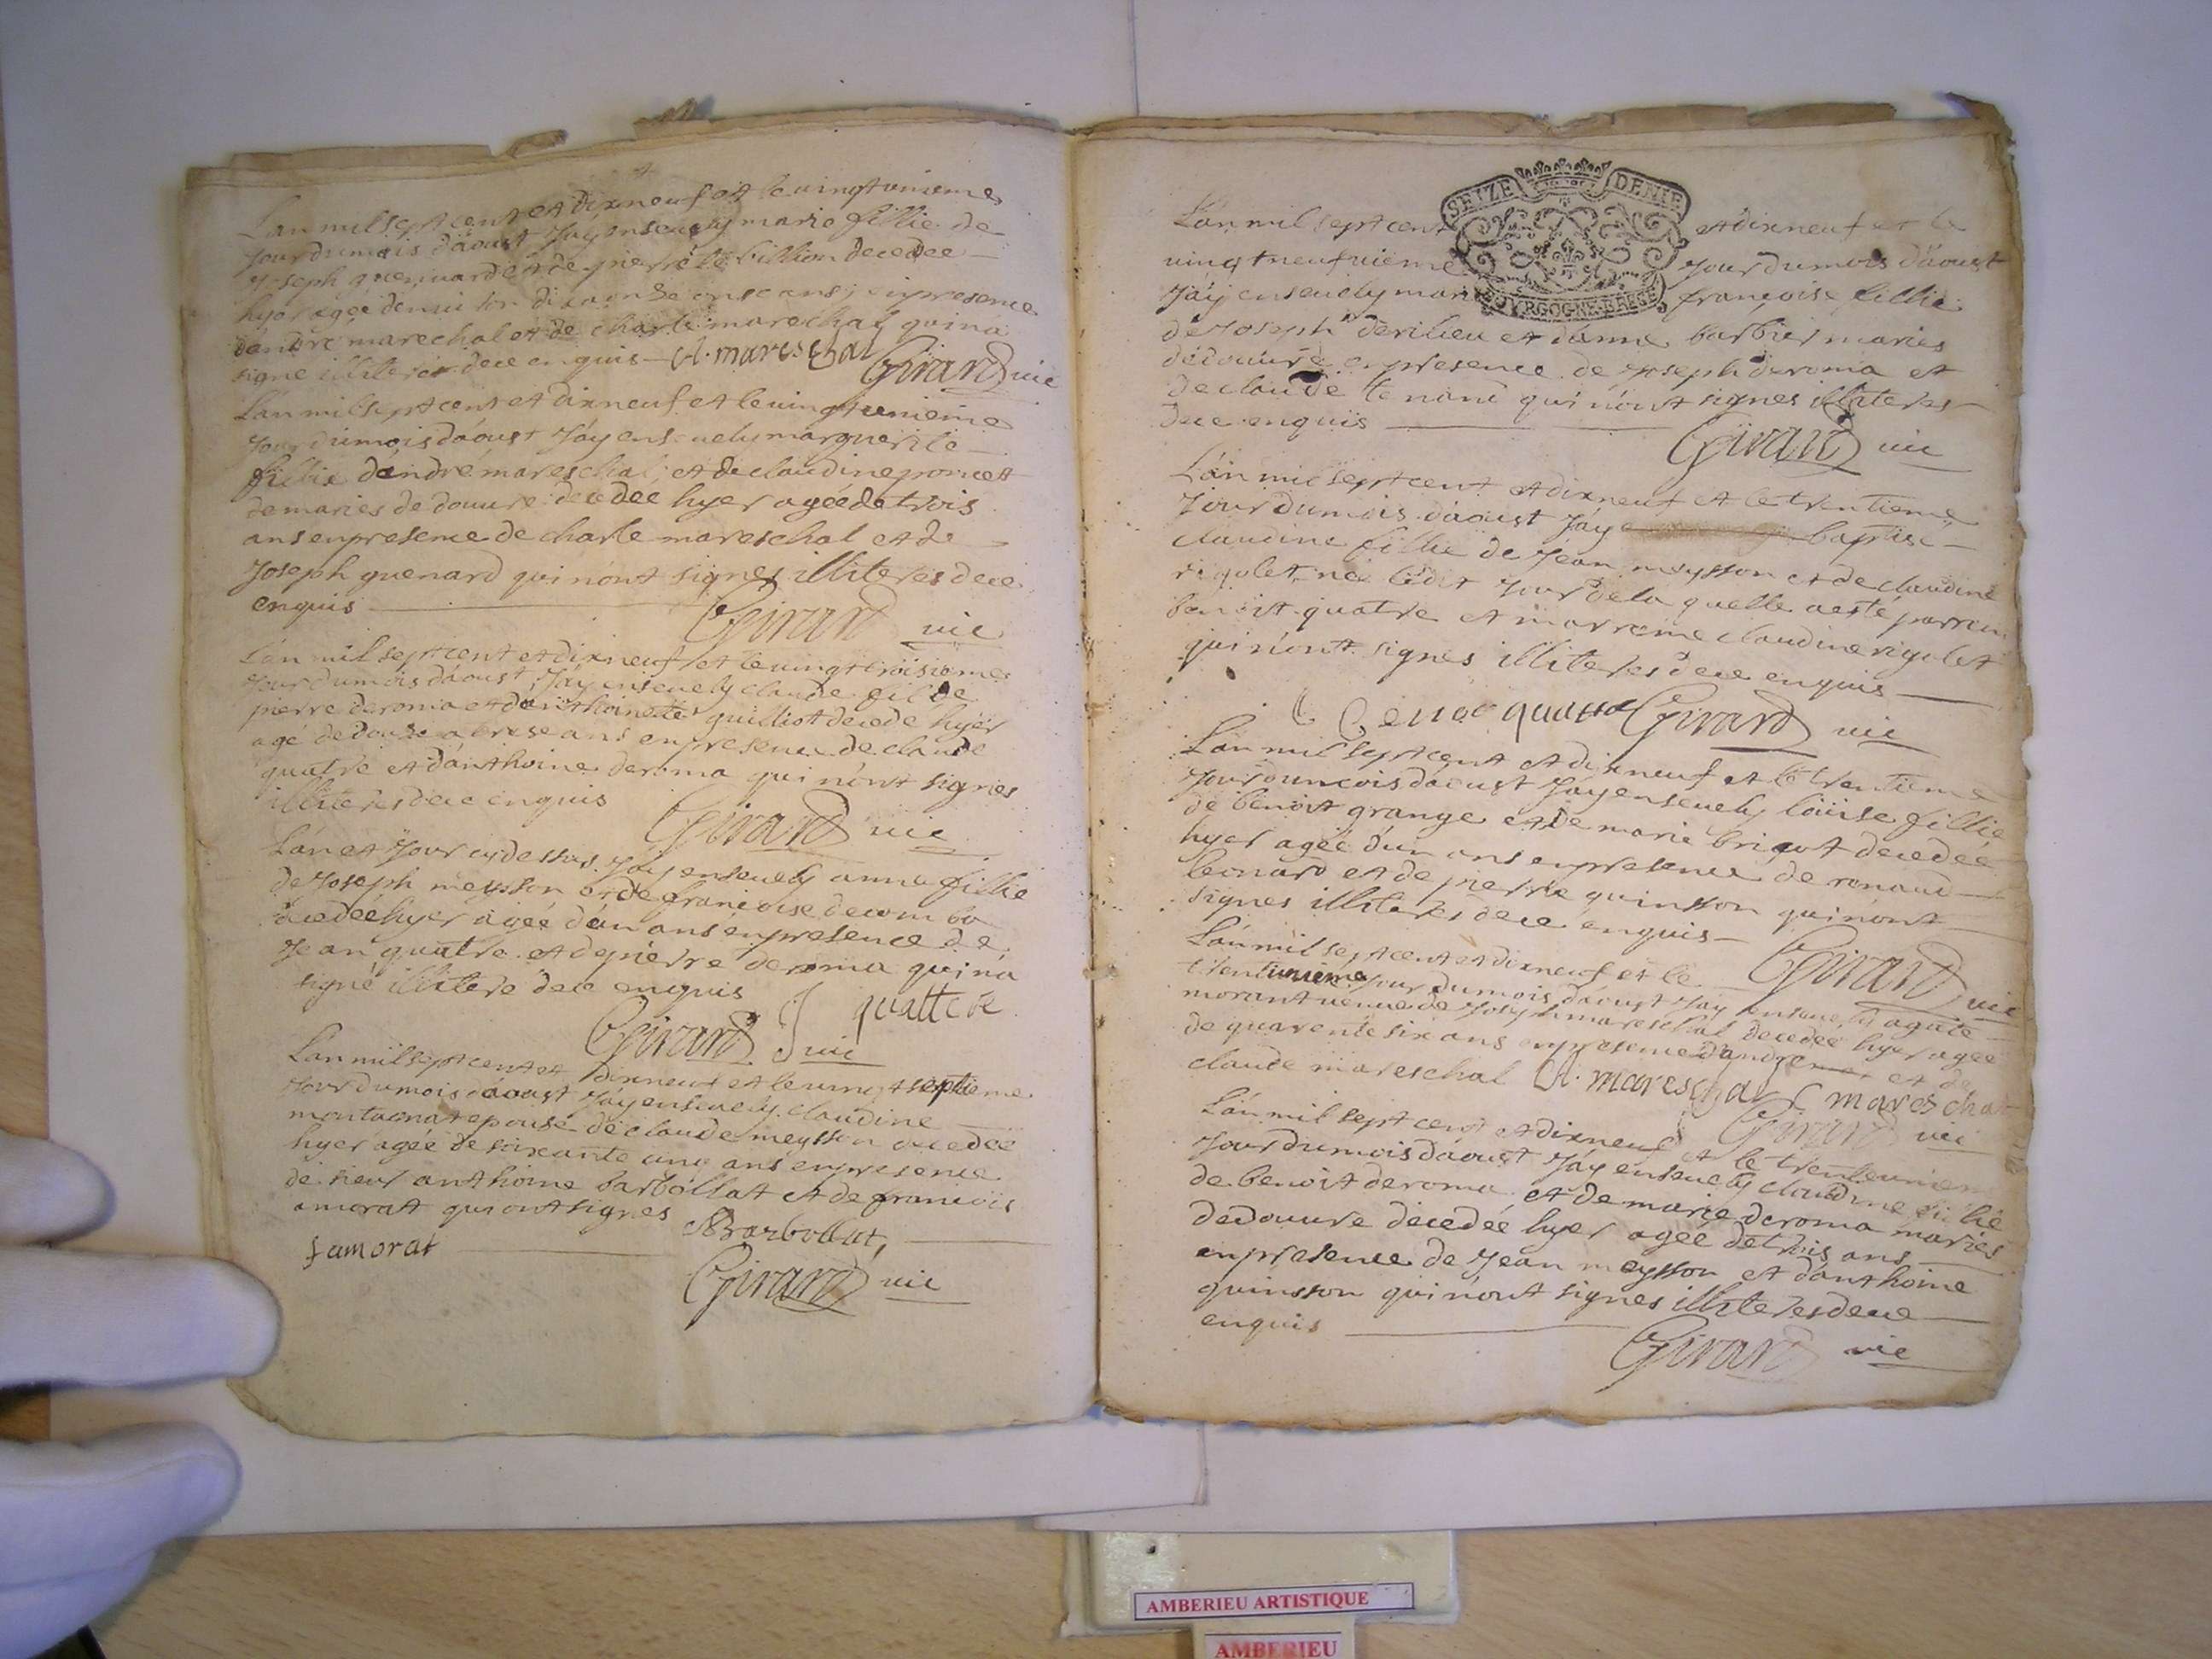 Lan mil sept cent et dixneuf et le vingtunieme
Jour du mois däoust Jáy ensevely marie fillie de
Joseph guenard et de pierrete billion decedee
hyer agee denvi ron dix a onse ans, en presence
dandré marechal et de charle marechal qui na
signe illiteres dece enquis A. mareschal Girard vic
Lán mil sept cent et dixneuf et le vingtunieme
Jour du mois dáoust Jáy ensevely marguerite
fillie dándré mareschal, et de claudine poncet
de maries de douvre decedee hyer agéé de trois
ans en presence de charle mareschal et de
Joseph guenard qui nónt signes illiteres dece
enquis Girard vic
Lán mil sept cent et dixneuf et le vingt troisieme
Jour du mois dáoust Jáy ensevely claude fil de
pierre deroma et dánthoinete guilliot decede hyer
agé de douse a trese ans en presence de claude
quatre et dánthoine deroma qui nónt signes
illiteres dece enquis Girard vic
Lán et Jour cy dessus Jáy ensevely anne fillie
de Joseph meysson et de francoise decombo
decedéé hyer agéé dún ans en presence de
Jean quatre et de pierre deroma qui ná
signé illitere dece enquis J quattre
Girard vic
Lan mil sept cent et dixneuf et le vingt septieme
Jour du mois dáoust Jáy ensevely claudine
montagnat epouse de claude meysson decedéé
hyer agéé de soixante ans en presence
de sieur anthoine barbollat et de francois
amorat qui ont signes Barbollat,
famorat
Girard vic
SEIZE DENIE
BOVRGOGNE BRESSE
Lán mil sept cent et dixneuf et le
vingt neufvieme Jour du mois dáoust
Jáy ensevely marie françoise fillie
de Joseph derilieu et dánne barbier maries
de douvre en presence de Joseph deroma et
de claude tenand qui nónt signes illiteres
dece enquis Girard vic
Lán mil sept cent et dixneuf et le trentieme
Jour du mois dáoust Jáy baptise
claudine fillie de Jean meysson et de claudine
rigolet, néé ledit Jour de la quelle a esté parrein
benoit quatre et marreine claudine rigolet
qui nónt signes illiteres dece enquis
Benoe quattre Girard vic
Lán mil sept cent et dixneuf et le trentieme
Jour du mois dáoust Jáy ensevely loüise fillie
de benoit grange et de marie brigot decedéé
hyer agéé dún ans en presence de renaud
leonard et de pierre quinsson qui nónt
signes illiteres dece enquis Girard vic
Lán mil sept cent et dixneuf et le
trentunieme Jour du mois dáoust Jáy ensevely agate
morant veuve de Joseph mareschal decedéé hyer agéé
de quarente six ans en presence dandre et de
claude mareschal A. mareschal C mareschal
Girard vic
Lán mil sept cent et dixneuf et le trentunieme
Jour du mois dáoust Jáy ensevely claudine fillie
de benoit deroma et de marie deroma maries
de douvre decedéé hyer agéé de trois ans
en presence de Jean meysson et dánthoine
quinsson qui nónt signes illiteres dece
enquis Girard vic
AMBERIEU ARTISTIQUE
AMBERIEU